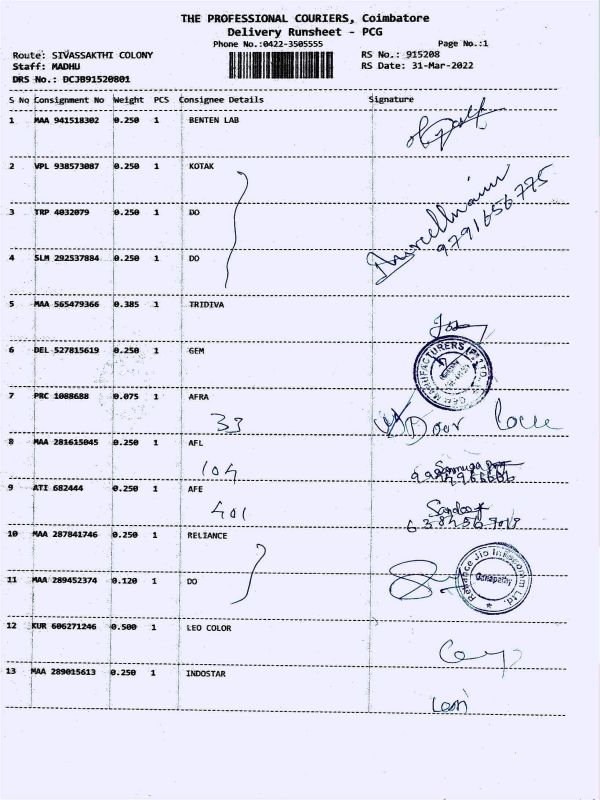 THE PROFESSIONAL COURIERS, Coimbatore
Delivery Runsheet - PCG
Phone No.:0422-3505555 Page No.:1
Route: SIVASSAKTHI COLONY RS No.: 915208
Staff: MADHU RS Date: 31-Mar-2022
DRS No.: DCJB91520801
S No Consignment No Weight PCS Consignee Details Signature
1 MAA 941518302 0.250 1 BENTEN LAB
2 VPL 938573087 0.250 1 KOTAK
3 TRP 4032079 0.250 1 DO
9791656775
4 SLM 292537884 0.250 1 DO
5 MAA 565479366 0.385 1 TRIDIVA
6 DEL 527815619 0.250 1 GEM
GEM MANUFACTURERS (P) LTD.
7 PRC 1088688 0.075 1 AFRA
33 Door
8 MAA 281615045 0.250 1 AFL
104
9 ATI 682444 0.250 1 AFE
401
10 MAA 287841746 0.250 1 RELIANCE
Reliance Jio Infocomm Ltd.
Ganapathy
11 MAA 289452374 0.120 1 DO
12 KUR 606271246 0.500 1 LEO COLOR
13 MAA 289015613 0.250 1 INDOSTAR